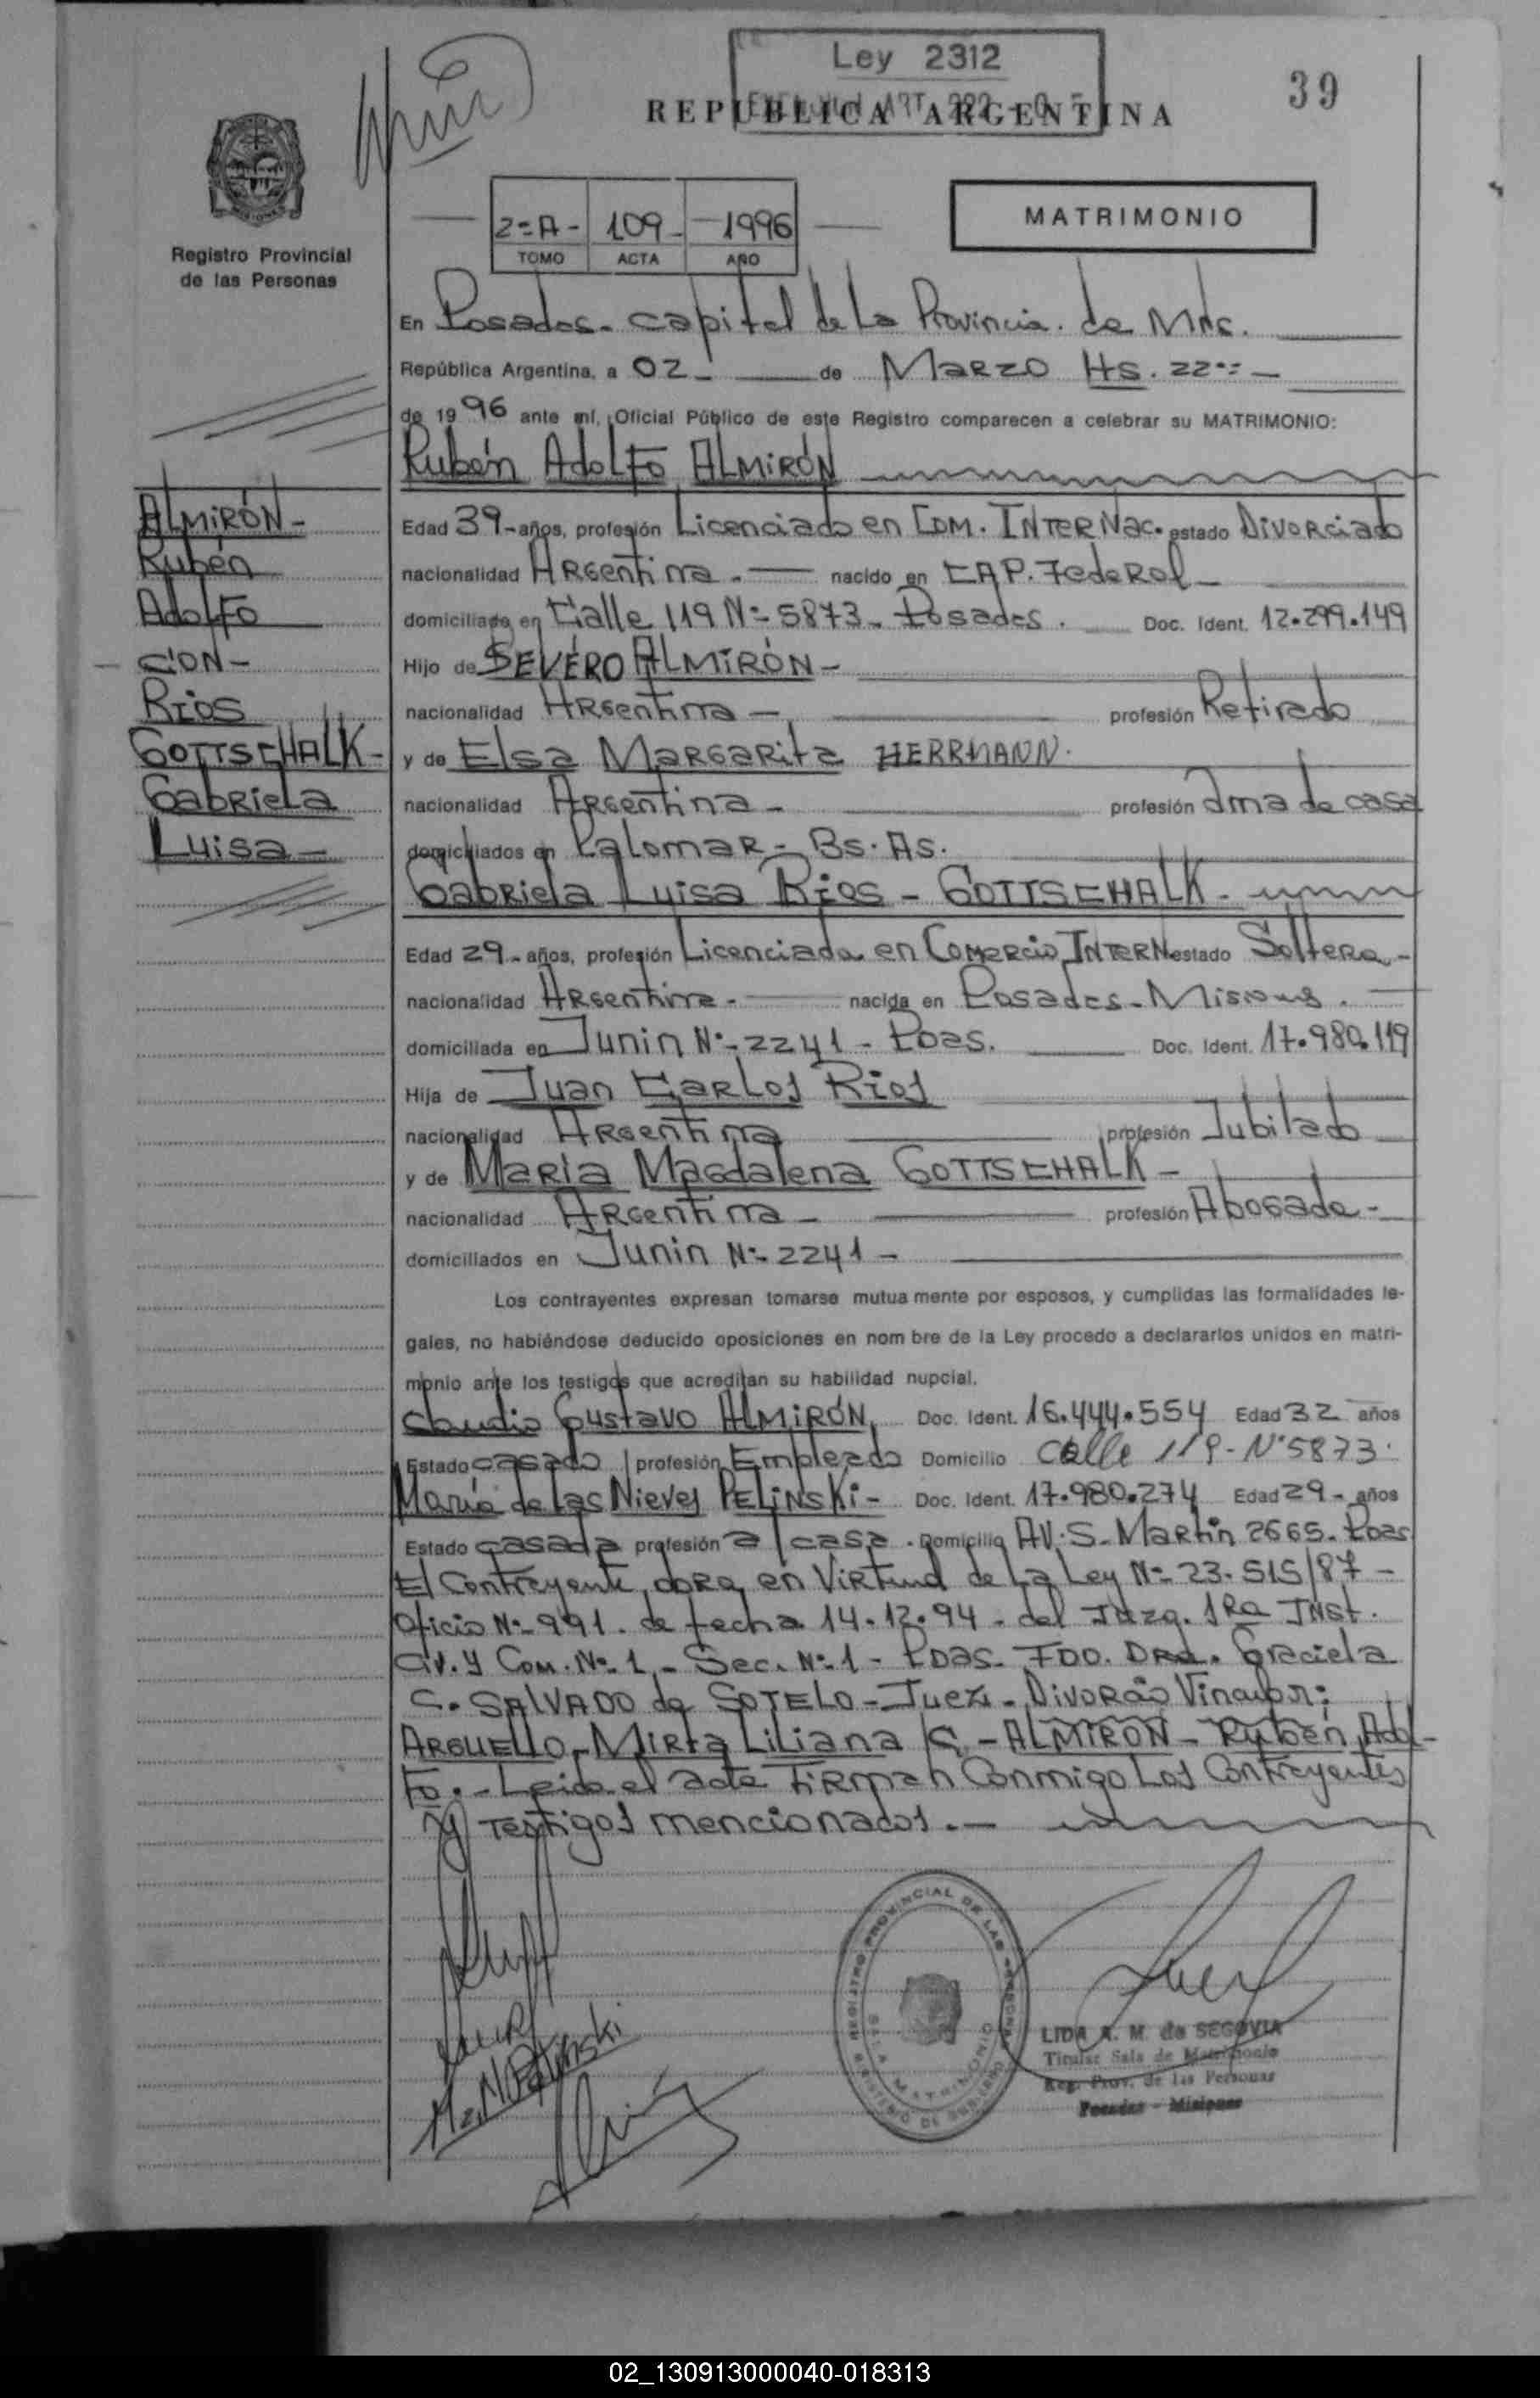 Ley 2312
REPUBLICA ARGENTINA
39
Registro Provincial
de las Personas
2=A- 109- 1996
TOMO ACTA AÑO
MATRIMONIO
En Posadas- capital de La Provincia. de Mnes.
República Argentina, a 02- de Marzo Hs. 22
de 1996 ante mí, Oficial Público de este Registro comparecen a celebrar su MATRIMONIO:
Rubén Adolfo ALMIRÓN
ALMIRÓN-
Rubén
Adolfo
CON-
Rios
GOTTSCHALK-
Gabriela
Luisa-
Edad 39- años, profesión Licenciado en COM. INTERNac. estado Divorciado
nacionalidad Argentina.- nacido en CAP. Federal-
domiciliado en Calle 119 N=5873- Posadas. Doc. Ident. 12.299.149
Hijo de SEVERO ALMIRÓN-
nacionalidad Argentina- profesión Retirado
y de Elsa Margarita HERRMANN.
nacionalidad Argentina- profesión ama de casa
domiciliados en Palomar- Bs. As.
Gabriela Luisa Rios - GOTTSCHALK-
Edad 29- años, profesión Licenciada en Comercio INTERN estado Soltera-
nacionalidad Argentina.- nacida en Posadas- Misiones.
domiciliada en Junin N=2241- Pdas. Doc. Ident. 17.980.119
Hija de Juan Carlos Rios
nacionalidad Argentina profesión Jubilado
y de Maria Magdalena GOTTSCHALK-
nacionalidad Argentina- profesión Abogada-
domiciliados en Junin N=2241-
Los contrayentes expresan tomarse mutua mente por esposos, y cumplidas las formalidades le-
gales, no habiéndose deducido oposiciones en nom bre de la Ley procedo a declararlos unidos en matri-
monio ante los testigos que acreditan su habilidad nupcial.
Claudio Gustavo ALMIRÓN, Doc. Ident. 16.444.554 Edad 32 años
Estado casado profesión Empleado Domicilio Calle 119- N°5873.
María de Las Nieves PELINSKI- Doc. Ident. 17.980.274 Edad 29- años
Estado casada profesión a/casa. Domicilio AV. S. Martin 2665- Pdas
El Contrayente, obra en Virtud de La Ley N= 23.515/87-
Oficio N=991. de fecha 14.12.94- del Juzg. 1Ra INST.
Civ. y Com. N=1- Sec. N=1- Pdas- FDO. DRA. Graciela
C. SALVADO de SOTELO-Juez- Divorcio Vincular:
ARGUELLO- Mirta Liliana /C. -ALMIRON- Rubén Adol-
fo.- Leida el acta FIRman Conmigo Los Contrayentes
y Testigos mencionados.-
REGISTRO PROVINCIAL DE LAS PERSONAS
SALA MATRIMONIO
MINISTERIO DE GOBIERNO
LIDA A. M. de SEGOVIA
Titular Sala de Matrimonio
Reg. Prov. de las Personas
Posadas - Misiones
02_130913000040-018313